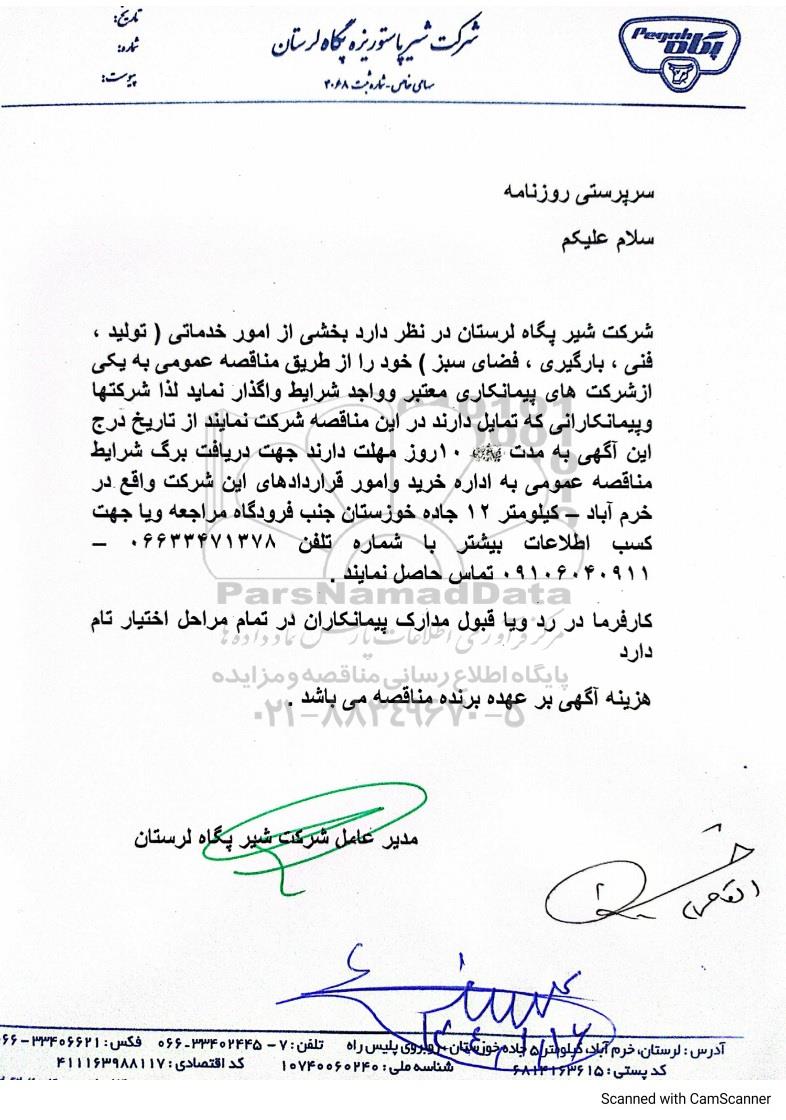 Pegah
پگاه
شرکت شیر پاستوریزه پگاه لرستان
سهامی خاص - شماره ثبت ۲۰۶۸
تاریخ:
شماره:
پیوست:
سرپرستی روزنامه
سلام علیکم
شرکت شیر پگاه لرستان در نظر دارد بخشی از امور خدماتی ( تولید ،
فنی ، بارگیری ، فضای سبز ) خود را از طریق مناقصه عمومی به یکی
ازشرکت های پیمانکاری معتبر وواجد شرایط واگذار نماید لذا شرکتها
وپیمانکارانی که تمایل دارند در این مناقصه شرکت نمایند از تاریخ درج
این آگهی به مدت ۱۰روز مهلت دارند جهت دریافت برگ شرایط
مناقصه عمومی به اداره خرید وامور قراردادهای این شرکت واقع در
خرم آباد – کیلومتر ۱۲ جاده خوزستان جنب فرودگاه مراجعه ویا جهت
کسب اطلاعات بیشتر با شماره تلفن ۰۶۶۳۳۴۷۱۳۷۸ –
۰۹۱۰۶۰۴۰۹۱۱ تماس حاصل نمایند .
ParsNamadData
کارفرما در رد ویا قبول مدارک پیمانکاران در تمام مراحل اختیار تام
مرکز فرآوری اطلاعات پارس نماد داده ها
دارد
پایگاه اطلاع رسانی مناقصه و مزایده
هزینه آگهی بر عهده برنده مناقصه می باشد .
۰۲۱-۸۸۳۴۹۶۷۰-۵
مدیر عامل شرکت شیر پگاه لرستان
آدرس : لرستان، خرم آباد، کیلومتر ۵ جاده خوزستان - روبروی پلیس راه تلفن : ۷ - ۳۳۴۰۲۴۴۵-۰۶۶ فکس : ۳۳۴۰۶۶۲۱-۰۶۶
کد پستی : ۶۸۱۴۱۶۳۶۱۵ شناسه ملی : ۱۰۷۴۰۰۶۰۲۴۰ کد اقتصادی : ۴۱۱۱۶۳۹۸۸۱۱۷
Scanned with CamScanner